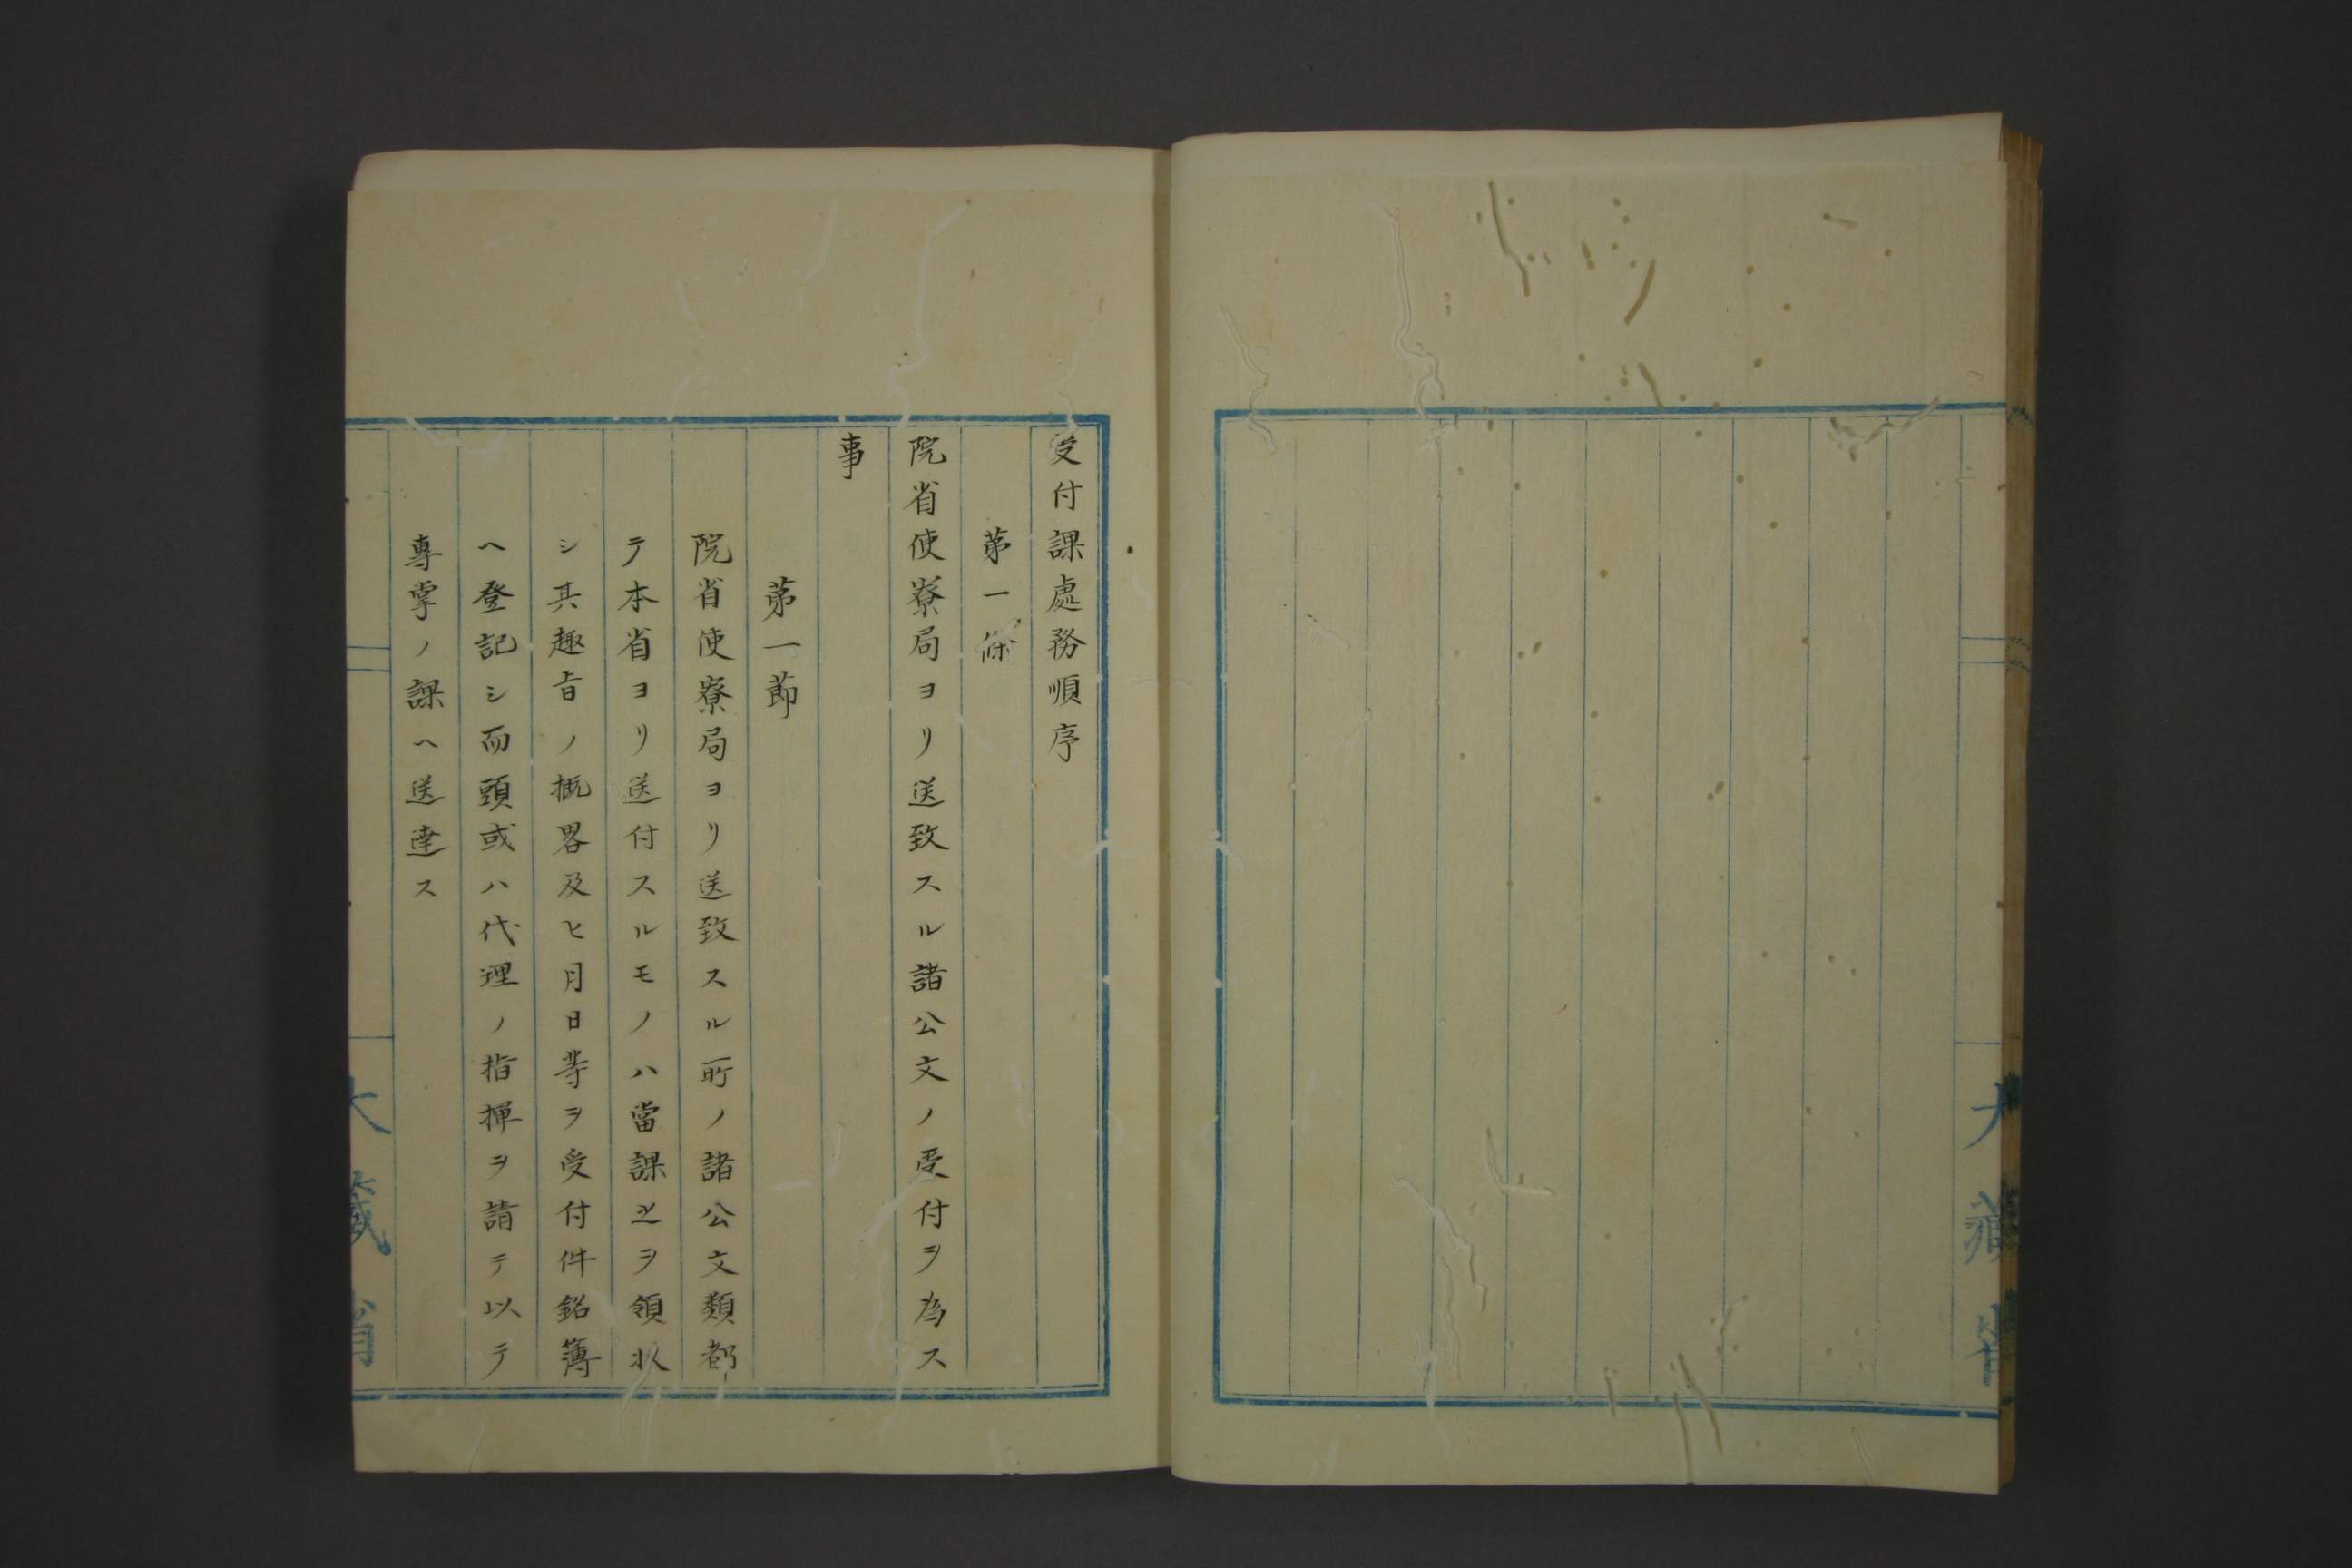 受付課處務順序
第一條
院省使寮局ヨリ送致スル諸公文ノ受付ヲ爲ス
事
第一節
院省使寮局ヨリ送致スル所ノ諸公文類都
テ本省ヨリ送付スルモノハ當課之ヲ領收
シ其趣旨ノ概畧及ヒ月日等ヲ受付件銘簿
ヘ登記シ而頭或ハ代理ノ指揮ヲ請テ以テ
專掌ノ課ヘ送達ス
大藏省
大藏省